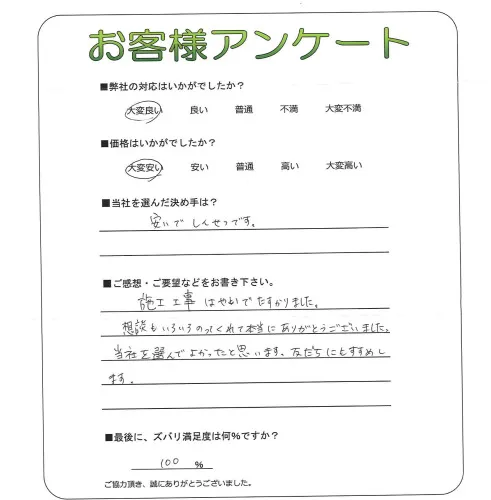 お客様アンケート
■弊社の対応はいかがでしたか？
大変良い 良い 普通 不満 大変不満
■価格はいかがでしたか？
大変安い 安い 普通 高い 大変高い
■当社を選んだ決め手は？
安いで しんせつです。
■ご感想・ご要望などをお書き下さい。
施工工事 はやいで たすかりました。
想談もいろいろのってくれて本当に ありがとうございました。
当社を選んで よかったと思います、友だちにもすすめし
ます。
■最後に、ズバリ満足度は何%ですか？
100 %
ご協力頂き、誠にありがとうございました。